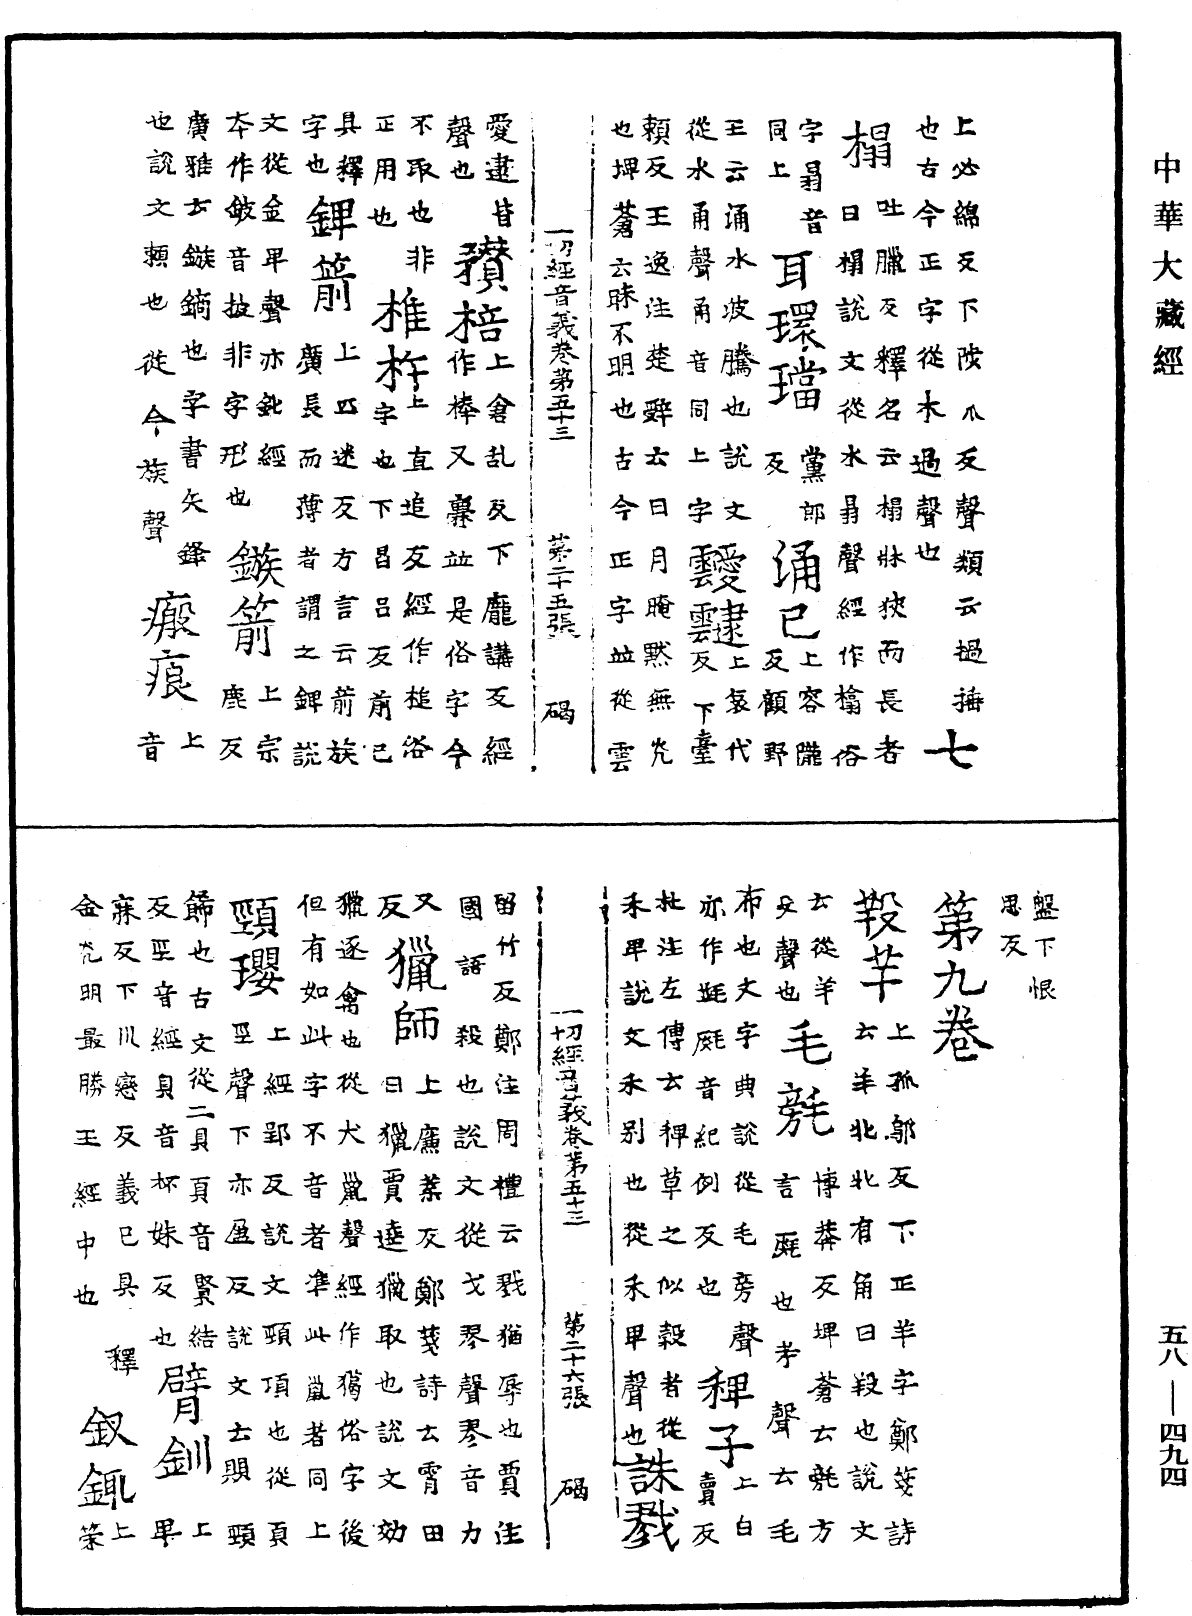 中華大藏經
上必綿反下陟爪反聲類云撾捶
也古今正字從木過聲也 七
榻 吐臘反釋名云榻牀狹而長者
曰榻說文從木㬱聲經作㯓俗
字㬱音
同上 耳環璫 黨郎反 涌已 上容隴反顧野
王云涌水波騰也說文
從水甬聲甬音同上字 靉靆 上哀代反下臺
賴反王逸注楚辭云日月晻黙無光
也埤蒼云昧不明也古今正字並從雲
一切經音義卷第五十三 第二十五張 碣
愛逮皆
聲也 攅棓 上倉乱反下龐講反經
作棒又㯷並是俗字今
不取也非
正用也 椎杵 上直追反經作槌俗
字也下昌呂反前已
具釋
字也 錍箭 上匹迷反方言云箭族
廣長而薄者謂之錍說
文從金卑聲亦鈚經
本作鈹音披非字形也 鏃箭 上宗
鹿反
廣雅云鏃鏑也字書矢鋒
也說文頼也從今族聲 瘢痕 上
音
盤下恨
恩反
第九卷
羖羊 上孤鄔反下正羊字鄭箋詩
云羊牝牝有角曰羖也說文
云從羊
殳聲也 毛㲠 博莽反埤蒼云㲠方
言㲯也考聲云毛
布也文字典說從毛旁聲
亦作㲯音紀例反也 稗子 上白
賣反
杜注左傳云稗草之似穀者從
禾卑說文禾别也從禾卑聲也 誅戮
一切經音義卷第五十三 第二十六張 碣
留竹反鄭注周禮云戮猶辱也賈注
國語殺也說文從戈翏聲翏音力
又
反 獵師 上廉葉反鄭箋詩云宵田
曰獵賈逵獵取也說文効
獵逐禽也從犬巤聲經作獦俗字後
但有如此字不音者準此巤者同上
頸瓔 上經郢反說文頸項也從頁
巠聲下亦盈反說文云賏頸
飾也古文從二貝頁音賢結
反巠音經貝音杯妹反也 臂釧 上
卑
寐反下川戀反義已具釋
金光明最勝王經中也 釵鋜 上
策
五八—四九四